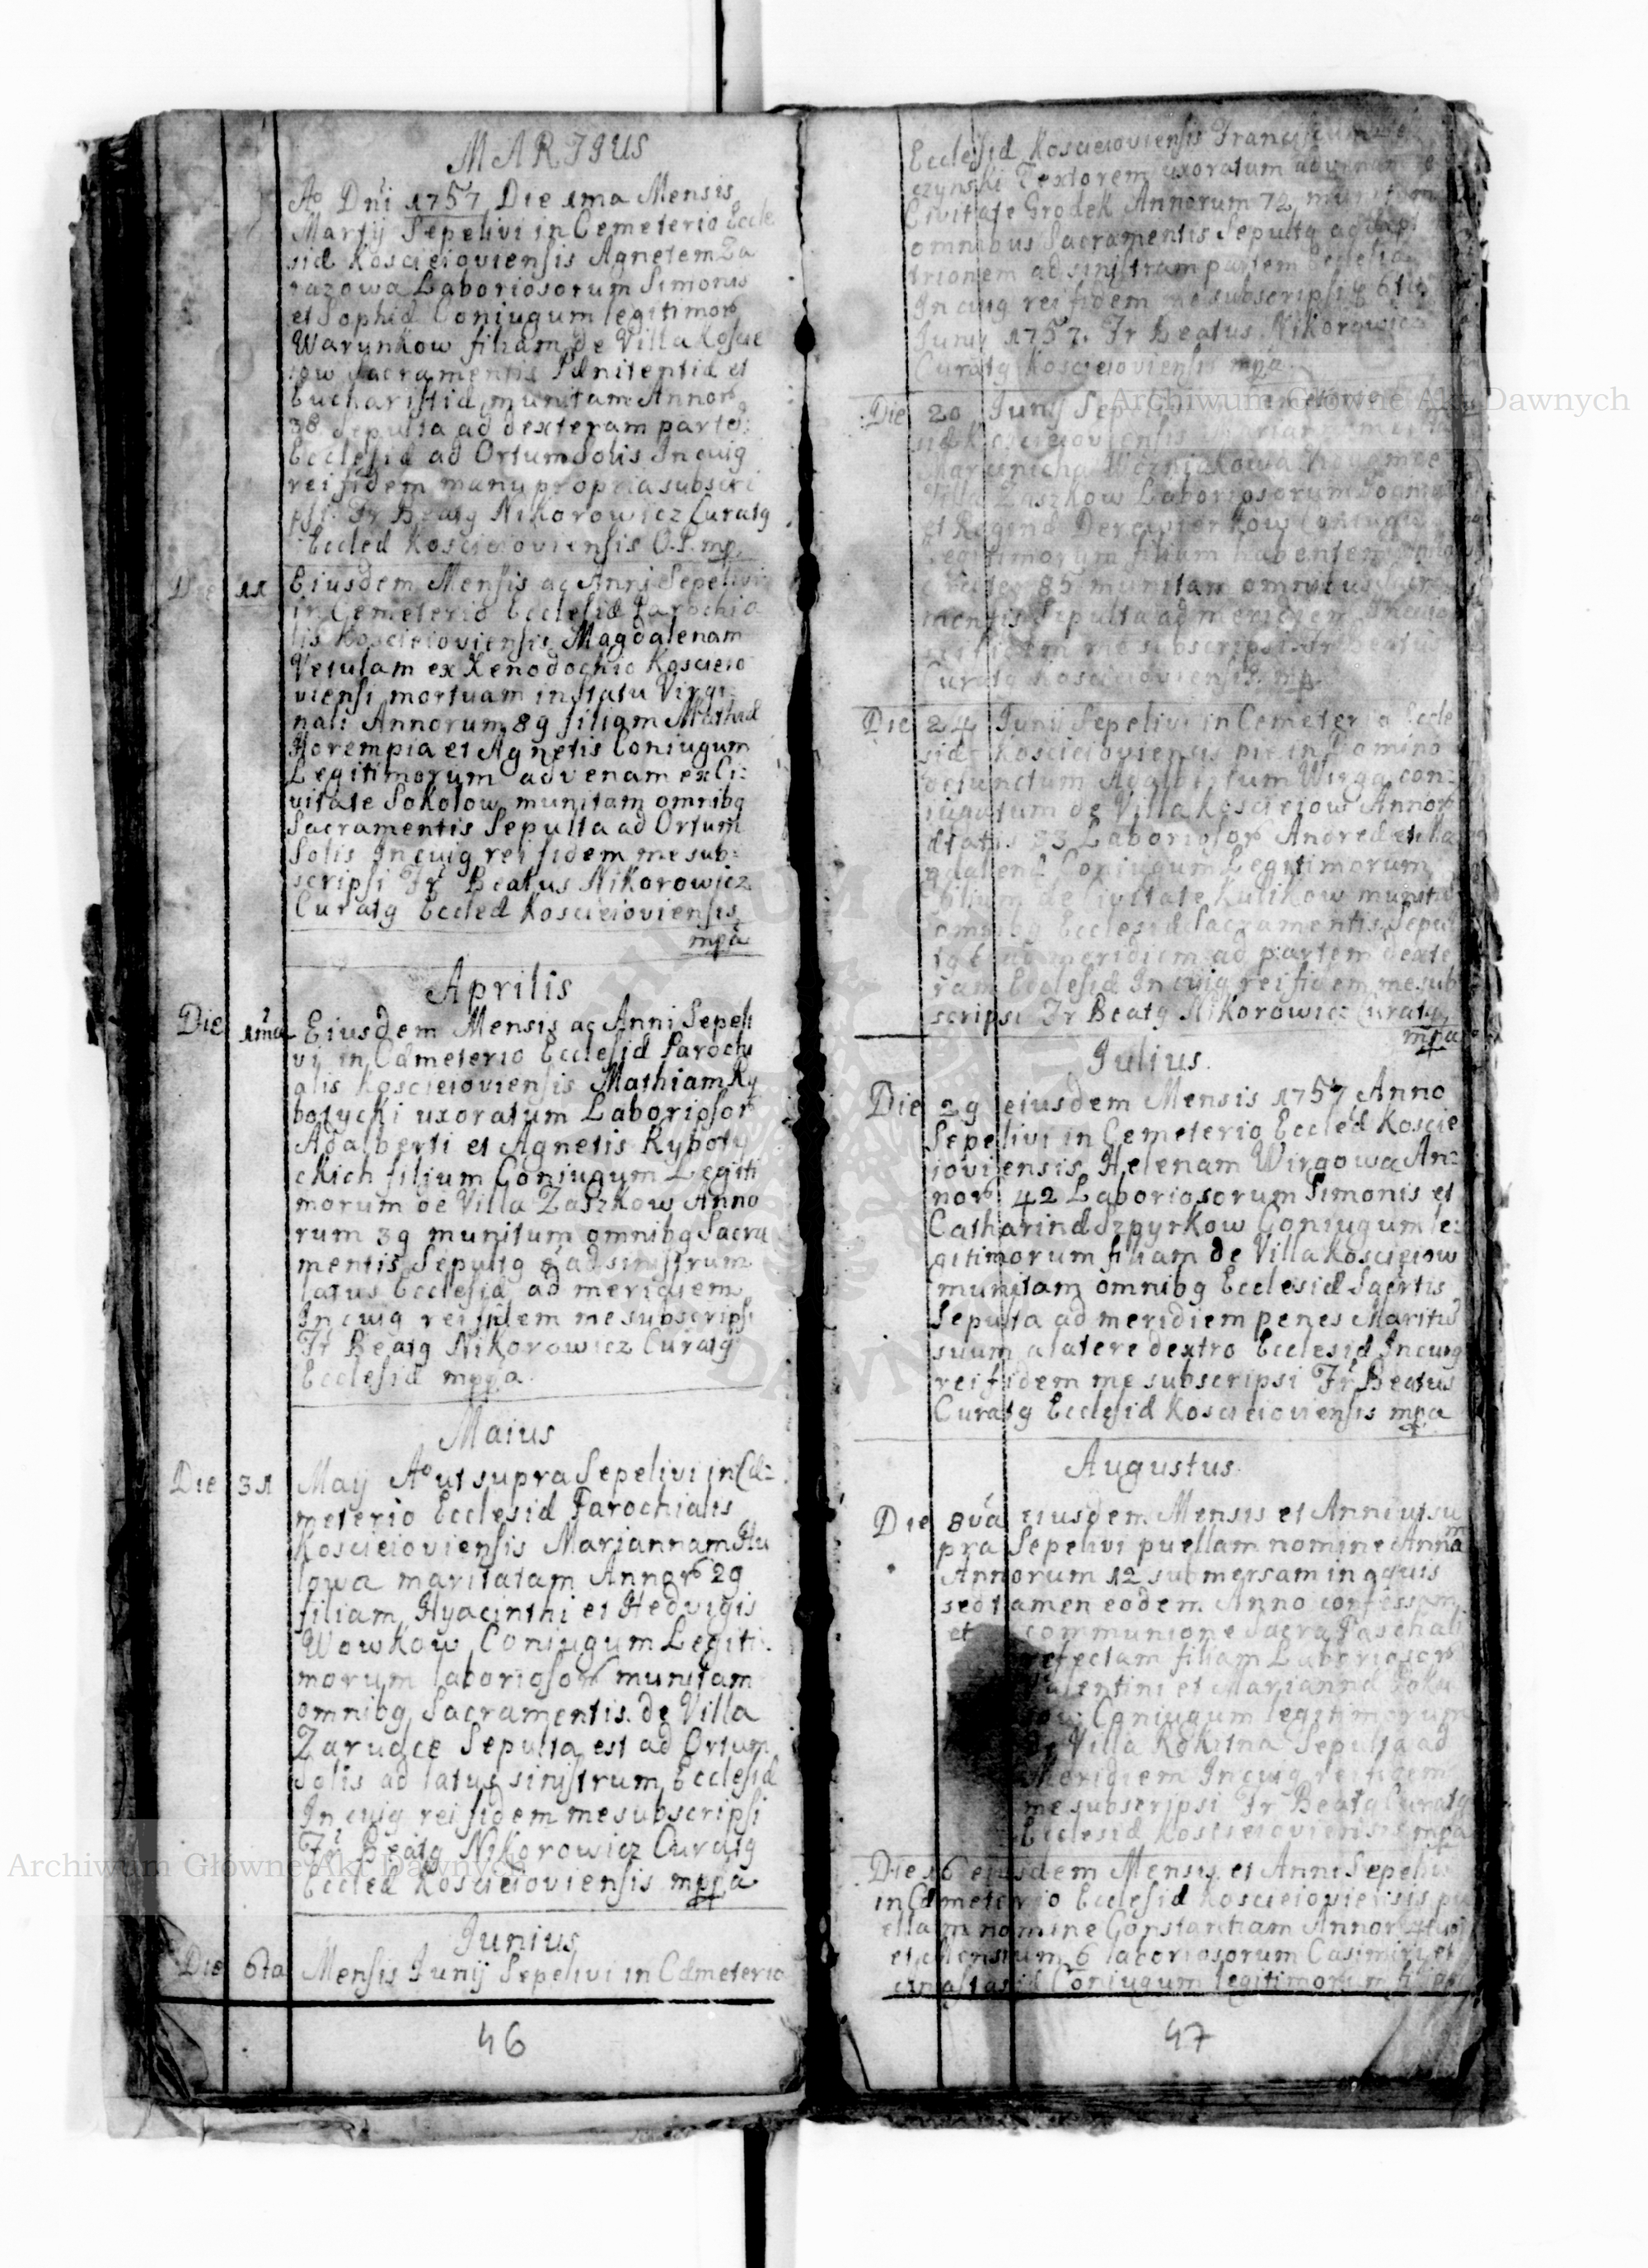 MARTIUS
Ao Dni 1757 Die 1ma Mensis
Martij Sepelivi in Cemeterio Eccle
siæ Koscieioviensis Agnetem Za
razowa Laboriosorum Simonis
et Sophiæ Coniugum legitimor
Warynkow filiam de Villa Koscie
iow Sacramentis Pænitentiæ et
Eucharistiæ munitam Annor
38 Sepulta ad dexteram parte
Ecclesiæ ad Ortum Solis In cuig
rei fidem manu propria subscri
psi Fr Beatg Nikorowicz Curatg
Eccleæ Koscieioviensis O.P. mp
Die 11 Eiusdem Mensis ac Anni Sepelivi
in Cemeterio Ecclesiæ Parochia
lis Koscieioviensis Magdalenam
Vetulam ex Xenodochio Koscieio
viensi mortuam in statu Virgi
nali Annorum 89 filiam Mathiæ
Horempia et Agnetis Coniugum
Legitimorum advenam ex Ci:
vitate Sokolow munitam omnibg
Sacramentis Sepulta ad Ortum
Solis In cuig rei fidem me sub=
scripsi Fr Beatus Nikorowicz
Curatg Eccleæ Koscieioviensis
mpa
Aprilis
Die 1ma Eiusdem Mensis ac Anni Sepeli
vi in Cæmeterio Ecclesiæ Parochi
alis Koscieioviensis Mathiam Ry
botycki uxoratum Laboriosor
Adalberti et Agnetis Ryboty
ckich filium Coniugum Legiti
morum de Villa Zaszkow Anno
rum 39 munitum omnibg Sacra
mentis Sepultg ad sinistrum
latus Ecclesiæ ad meridiem
In cuig rei fidem me subscripsi
Fr Beatg Nikorowicz Curatg
Ecclesiæ mppa
Maius
Die 31 Maij Ao ut supra Sepelivi in Cæ=
meterio Ecclesiæ Parochialis
Koscieioviensis Mariannam Hu
lowa maritatam Annor 29
filiam Hyacinthi et Hedvigis
Wowkow Coniugum Legiti:
morum laboriosor munitam
omnibg Sacramentis de Villa
Zarudce Sepulta est ad Ortum
Solis ad latus sinistrum Ecclesiæ
In cuig rei fidem me subscripsi
Fr Beatg Nikorowicz Curatg
Eccleæ Koscieioviensis mppa
Junius
Die 6ta Mensis Junij Sepelivi in Cæmeterio
46
Ecclesiæ Koscieioviensis
czynski Textorem uxoratum advenam
Civitate Grodek Annorum 72
omnibus Sacramentis Sepultg ad Sept
trionem ad sinistram partem Ecclesiæ
In cuig rei fidem me subscripsi
Junij 1757. Fr Beatus Nikorowicz
Curatg Koscieioviensis mpa
Die 20 Junij
siæ Koscieioviensis
Villa Zaszkow Laboriosorum
et Reginæ Coniugu
legitimorum filiam habentem
85 munitam omnibus Sacra
mentis Sepulta ad meridiem In cuig
rei fidem me subscripsi Fr Beatus
Curatg Koscieioviensis mp
Die 24 Junii Sepelivi in Cemeterio Eccle
siæ Koscieioviensis pie in Domino
defunctum Adalbertum Wirga con=
iugatum de Villa Koscieiow Annor
ætatis 33 Laboriosor Andreæ et Ma
gdalenæ Coniugum Legitimorum
filium de Civitate Kulikow munitu
omnibg Ecclesiæ Sacramentis Sepul
tg ad meridiem ad partem dexte
ram Ecclesiæ In cuig rei fidem me sub
scripsi Fr Beatg Nikorowicz Curatg
mpa
Julius.
Die 29 eiusdem Mensis 1757 Anno
Sepelivi in Cemeterio Eccleæ Koscie
ioviensis Helenam Wirgowa An=
nor 42 Laboriosorum Simonis et
Catharinæ Szpyrkow Coniugum le:
gitimorum filiam de Villa Koscieiow
munitam omnibg Ecclesiæ Sacrtis
Sepulta ad meridiem penes Maritu
suum a latere dextro Ecclesiæ In cuig
rei fidem me subscripsi Fr Beatus
Curatg Ecclesiæ Koscieioviensis mpa
Augustus.
Die 8va eiusdem Mensis et Anni ut su
pra Sepelivi puellam nomine Annam
Annorum 12 submersam in aquis
sed tamen eodem Anno confessam
et communione Sacra Paschali
refectam filiam Laboriosor
Valentini et Mariannæ
Coniugum legitimorum
de Villa Rokitna Sepulta ad
Meridiem In cuig rei fidem
me subscripsi Fr Beatg Curatg
Ecclesiæ Koscieioviensis mpa
Die 16 eiusdem Mensis et Anni Sepelivi
in Cæmeterio Ecclesiæ Koscieioviensis pu
ellam nomine Constantiam Annor 4tuor
et Mensium 6 laboriosorum Casimiri et
Anastasiæ Coniugum legitimorum filiam
47
Archiwum Główne Akt Dawnych
Archiwum Główne Akt Dawnych